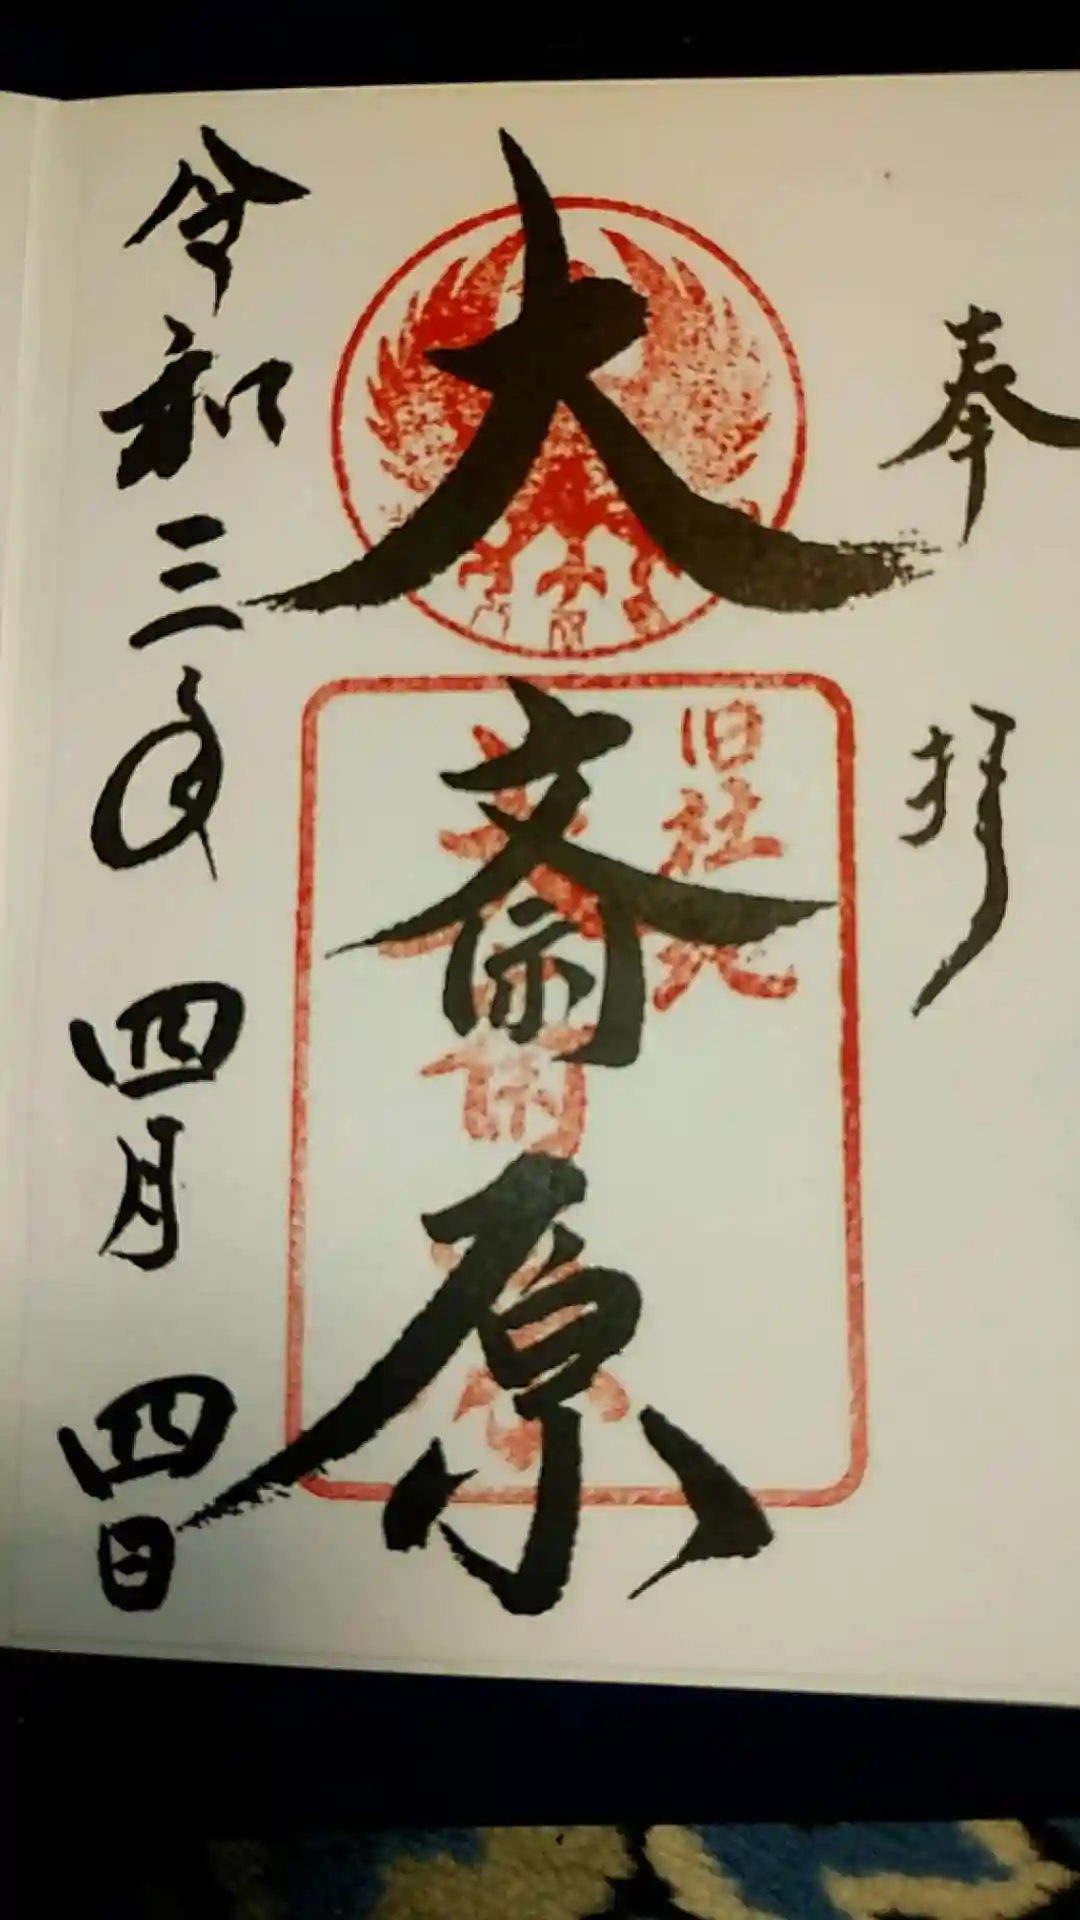 奉拝
大斎原
旧社地
大斎原
令和三年四月四日